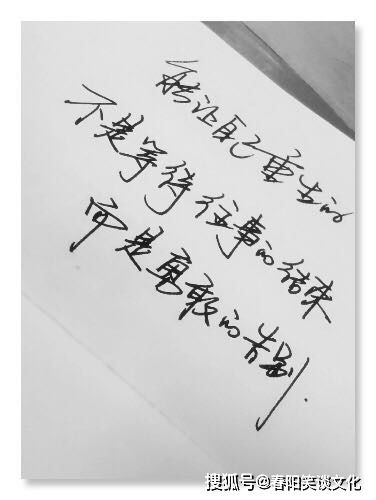 能让自己重生的
不是等待往事的结束
而是勇敢的告别.
搜狐号@春阳笑谈文化